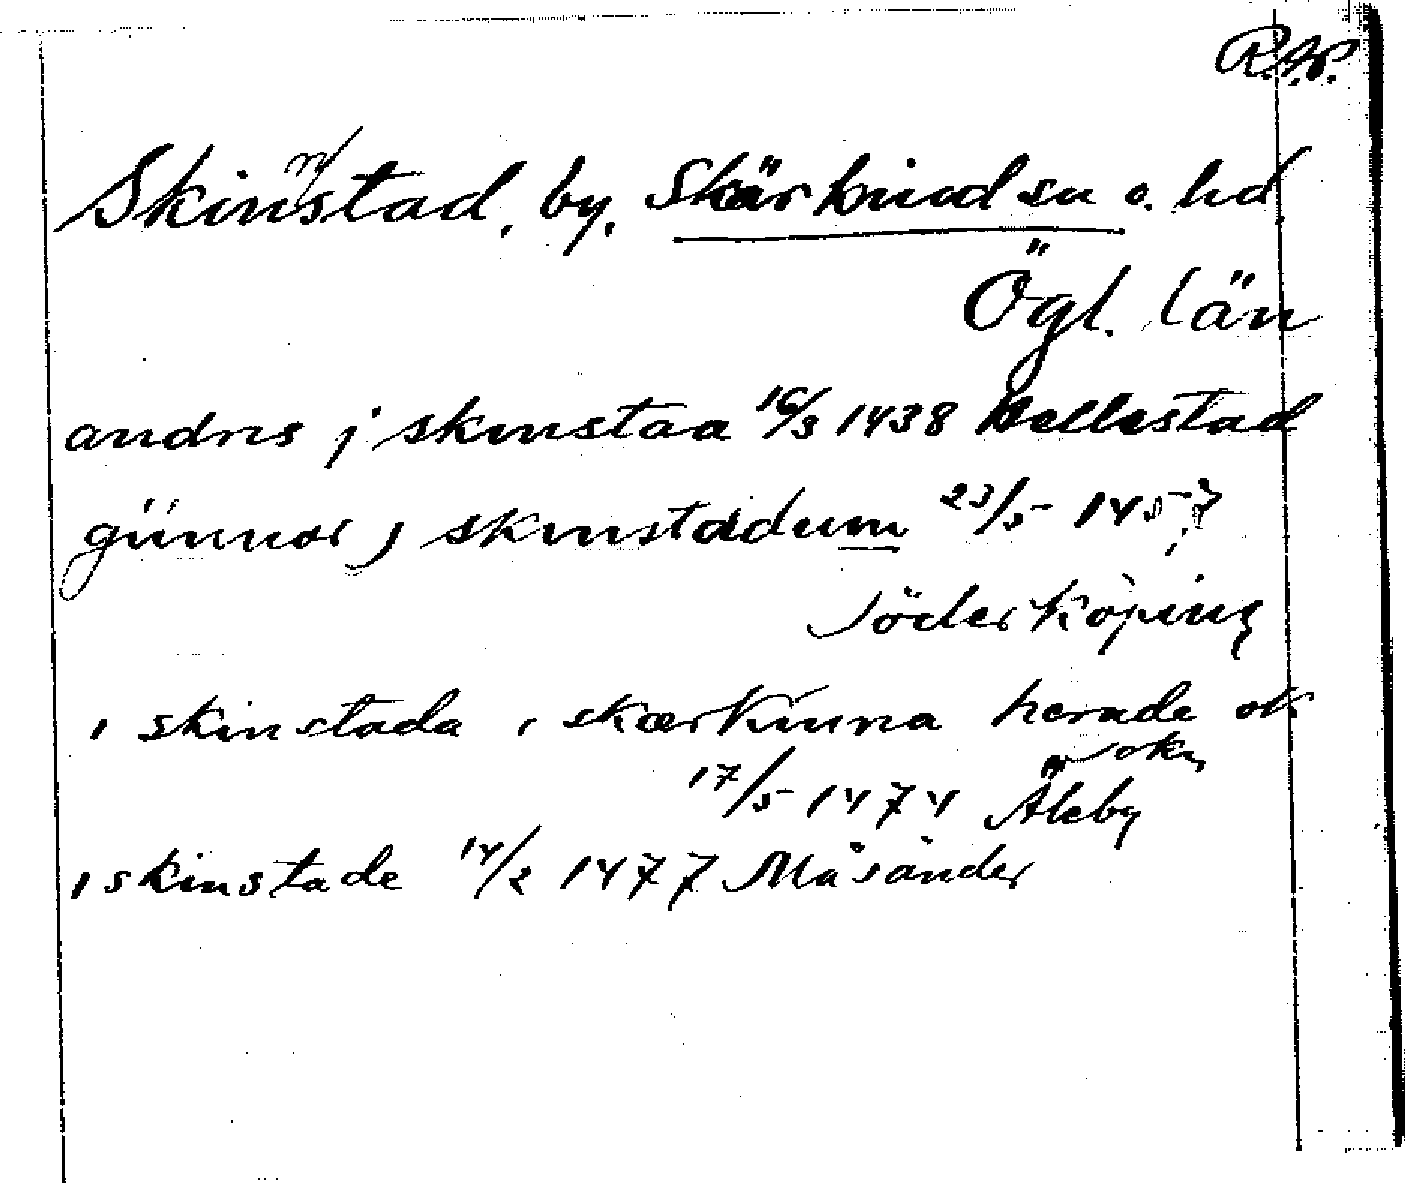 R.A.P.
Skinnstad, by, Skärkind sn o. hd.
Ögl. län
andris j skinstaa 16/3 1438 Hellestad
gunnar j skinstadum 23/5 1457
Söderköping
i skinstada i skærkinna herade ok
sokn
17/5 1474 Åleby
i skinstade 14/2 1477 Måsänder